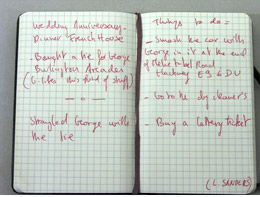 Wedding Anniversary-
Dinner French House
- Bought a tie for George
Burlington Arcades
(G likes this kind of stuff)
- o -
Strangled George with
the tie
Things to do =
- Smash the car with
George in it at the end
of Road
Hackney E9 6DU
- Go to the dry cleaner's
- Buy a lottery ticket
(L. SANDERS)